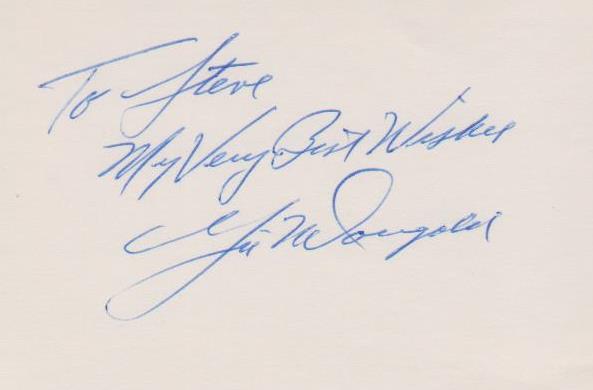 To Steve
My Very Best Wishes
Gil McDougald